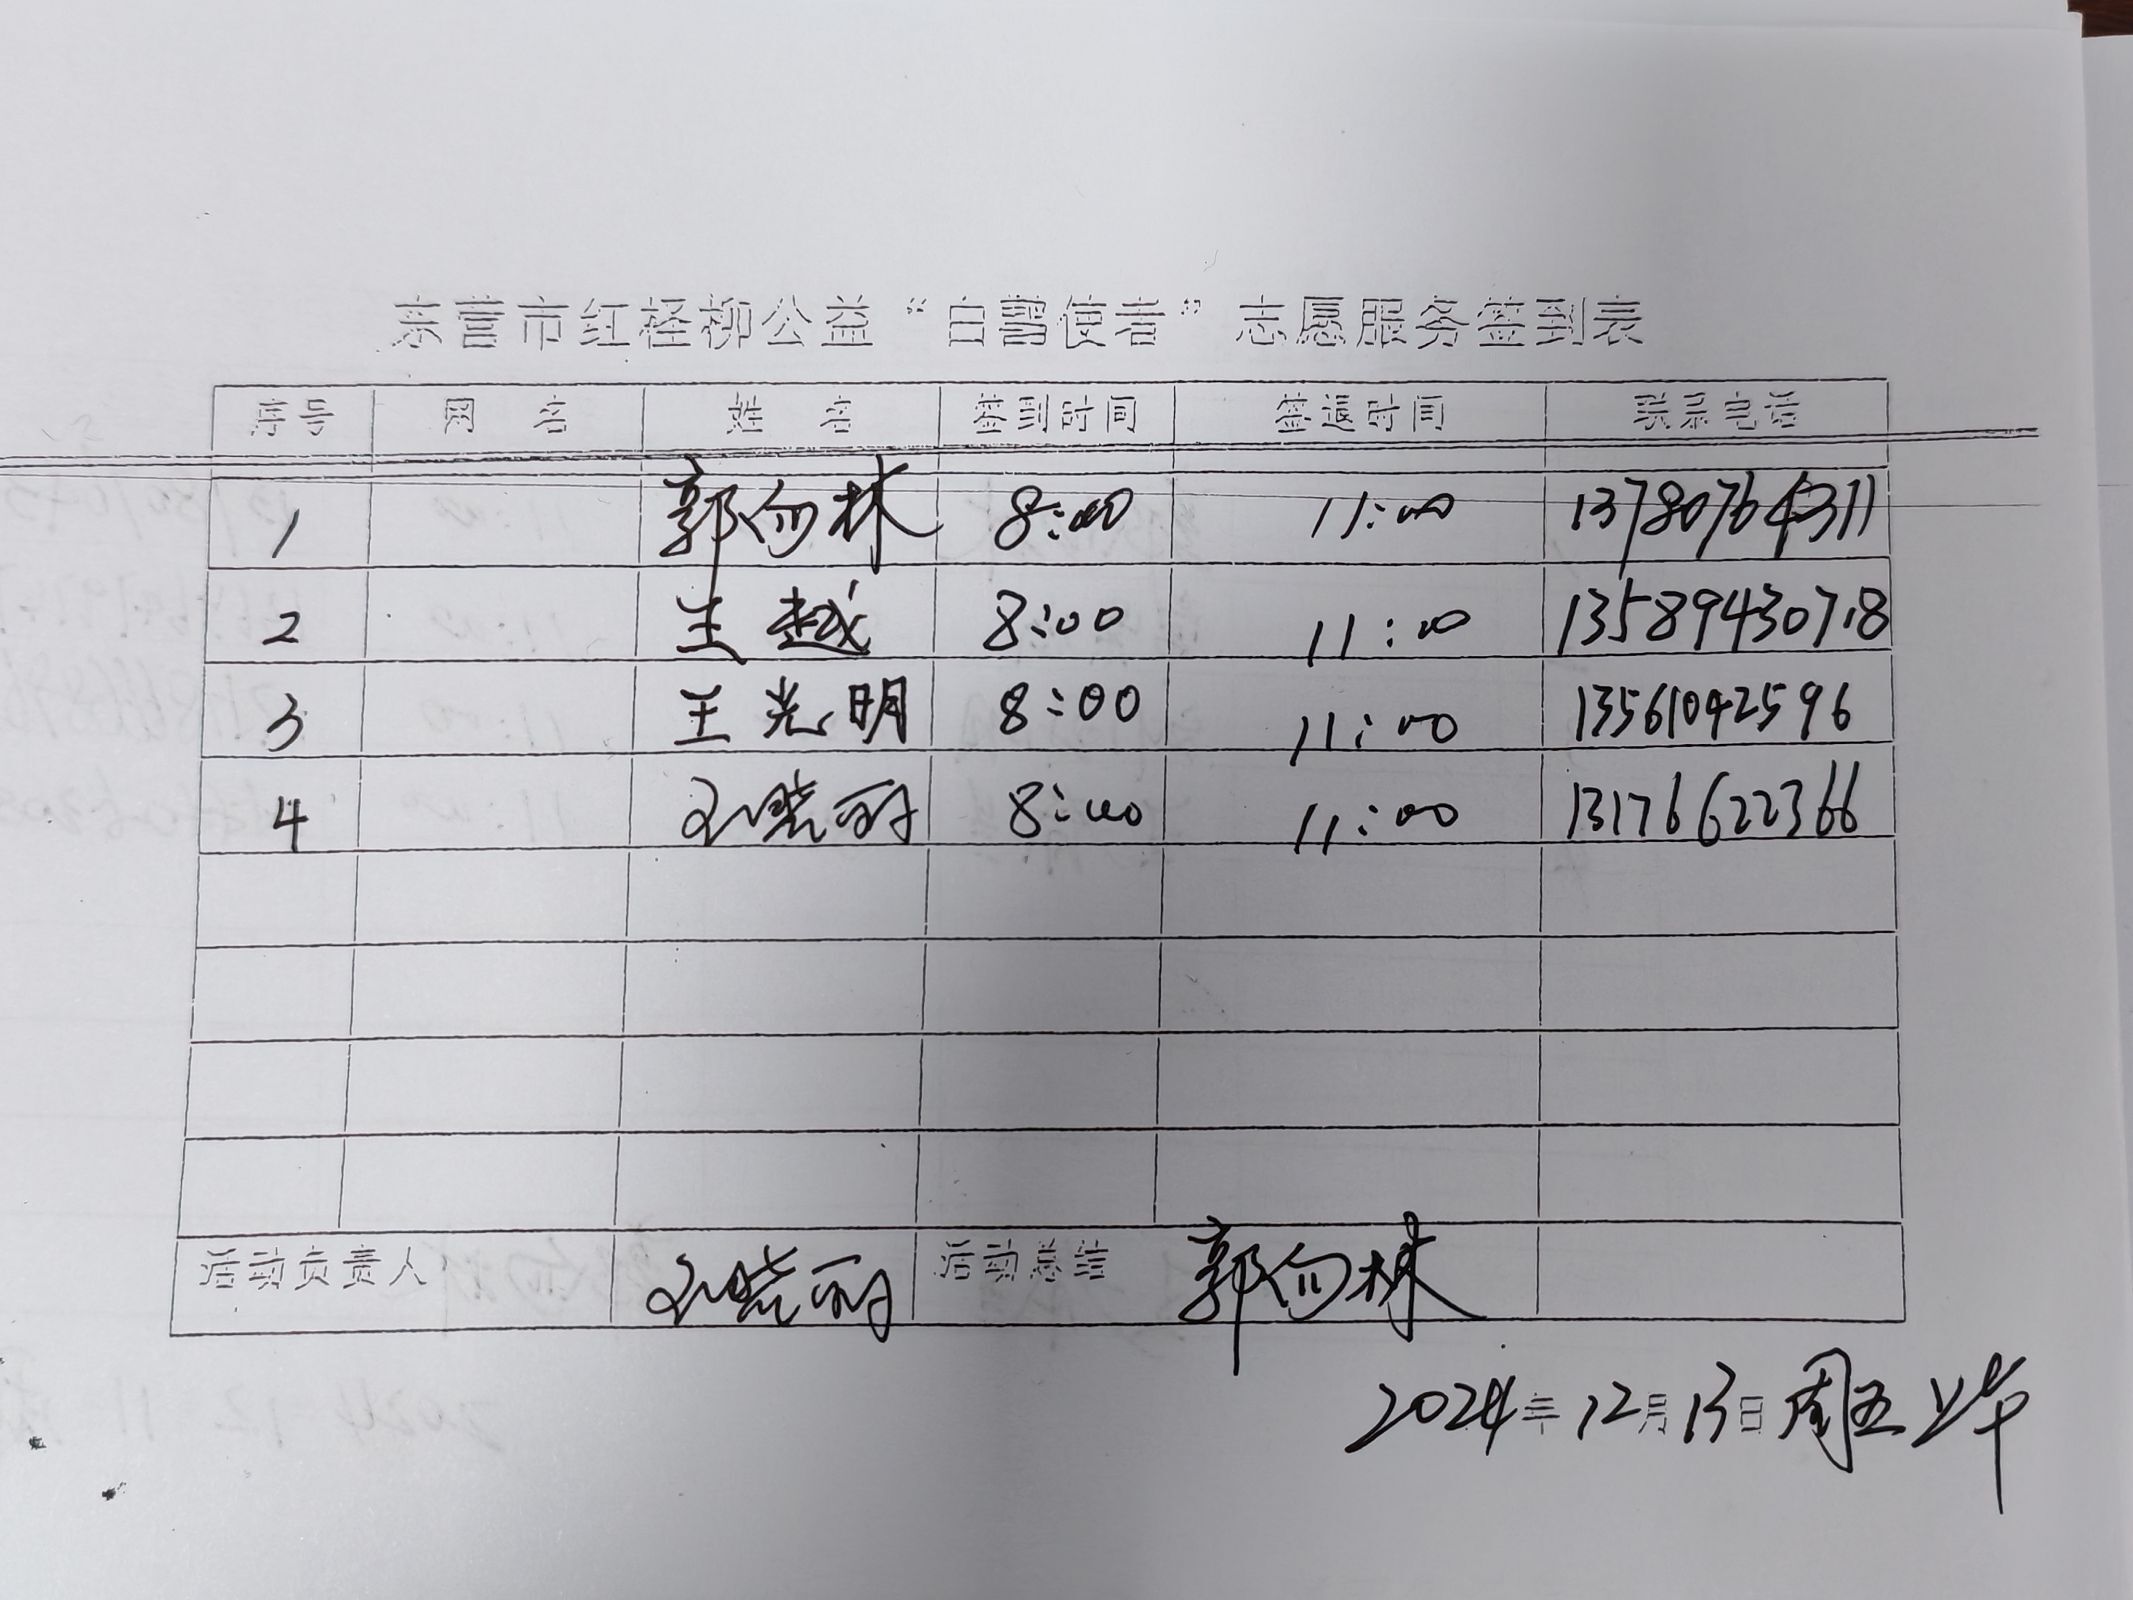 东营市红柽柳公益“白鹭使者”志愿服务签到表
序号 网名 姓名 签到时间 签退时间 联系电话
1 郭向林 8:00 11:00 13780764311
2 王越 8:00 11:00 13589430718
3 王光明 8:00 11:00 13561042596
4 刘晓丽 8:00 11:00 13176622366
活动负责人 刘晓丽 活动总结 郭向林
2024年12月13日 周五上午